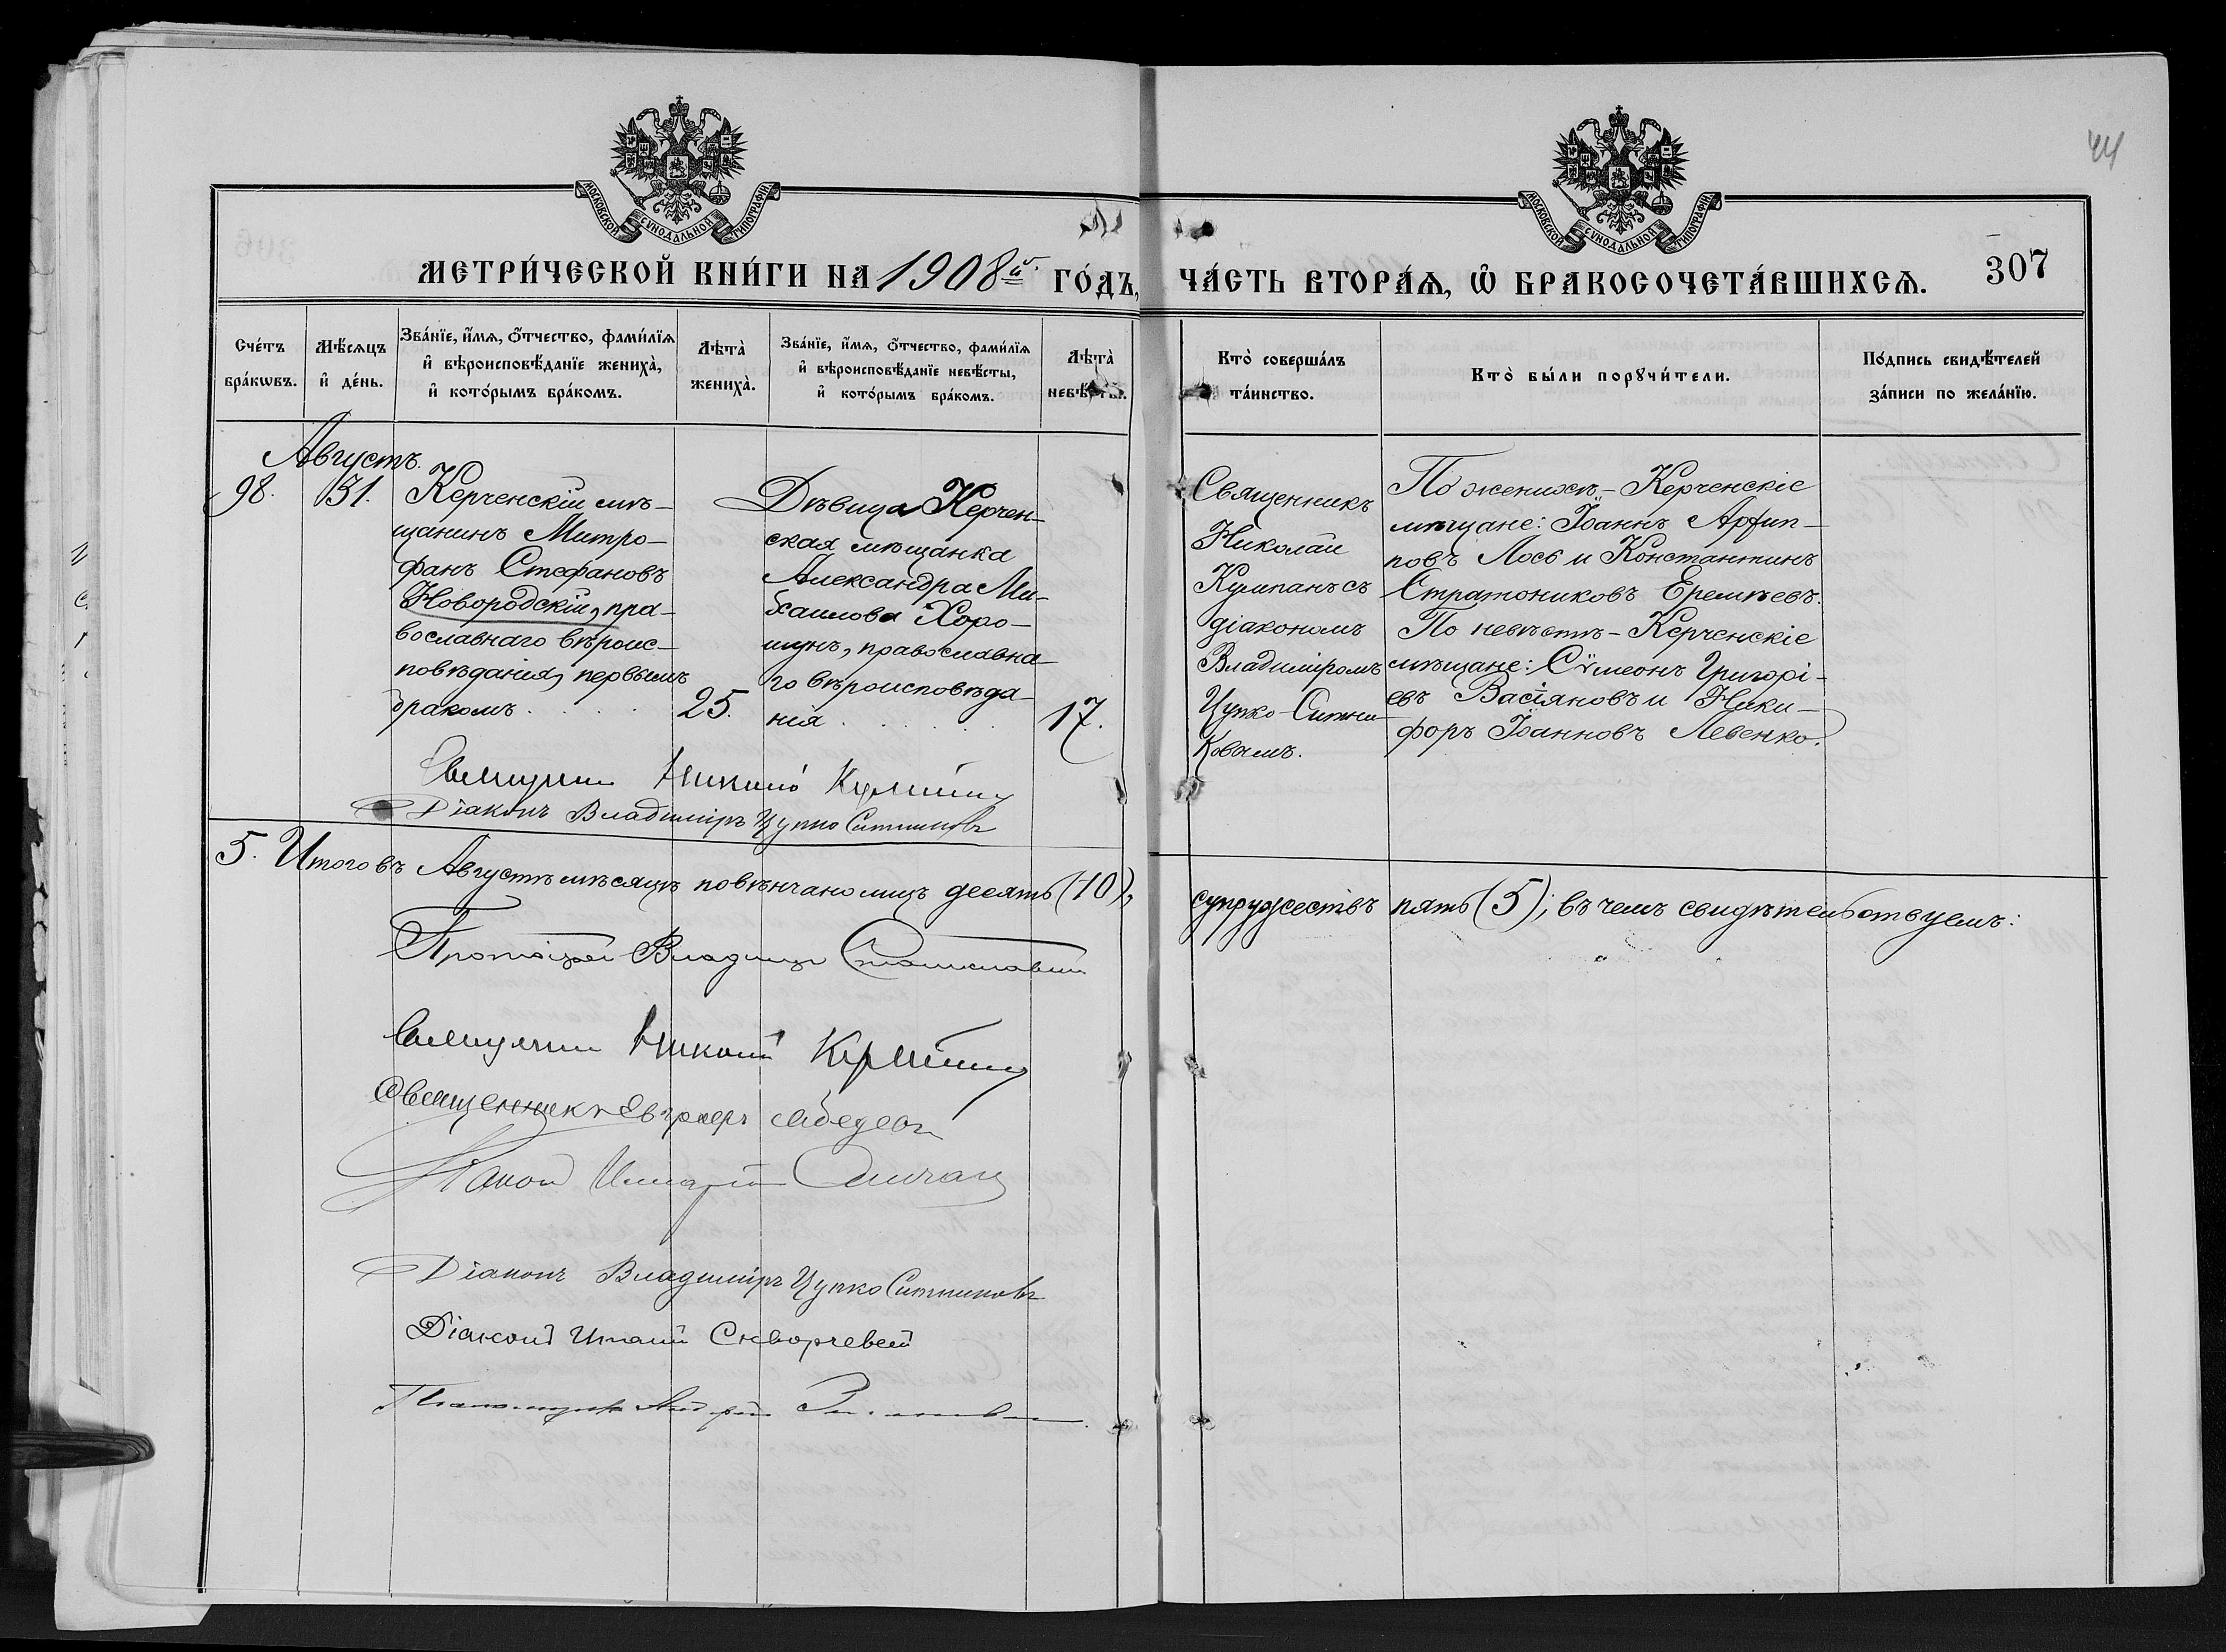 44
МОСКОВСКОЙ СѴНОДАЛЬНОЙ ТИПОГРАФІИ
МОСКОВСКОЙ СѴНОДАЛЬНОЙ ТИПОГРАФІИ
МЕТРИ́ЧЕСКОЙ КНИ́ГИ НА 1908й ГО́ДЪ, ЧА́СТЬ ВТОРА́Ѧ, Ѽ БРАКОСОЧЕТА́ВШИХСѦ. 307
Сче́тъ бра́кѡвъ.
Мѣ́сяцъ и҆ де́нь.
Зва́нїе, и҆́мѧ, ѻ҆́тчество, фами́лїѧ
и҆ вѣроисповѣ́данїе жениха̀,
и҆ кото́рымъ бра́комъ.
Лѣта̀ жениха̀.
Зва́нїе, и҆́мѧ, ѻ҆́тчество, фами́лїѧ
и҆ вѣроисповѣ́данїе невѣ́сты,
и҆ кото́рымъ бра́комъ.
Лѣта̀ невѣ́сты.
Кто̀ соверша́лъ та́инство.
Кто̀ бы́ли порꙋчи́тели.
По́дпись свидѣ́телей за́писи по жела́нїю.
Августъ.
98. 31.
Керченскій мѣ-
щанинъ Митро-
фанъ Стефановъ
Новородскій, пра-
вославнаго вѣроис-
повѣданія, первымъ
бракомъ . . . . 25.
Дѣвица Керчен-
ская мѣщанка
Александра Ми-
хаилова Хоро-
шунъ, православна-
го вѣроисповѣда-
нія . . . . . 17.
Священникъ
Николай
Кумпанъ съ
діакономъ
Владиміромъ
Цупко-Ситни-
ковымъ.
По женихѣ - Керченскіе
мѣщане: Іоаннъ Архип-
повъ Лось и Константинъ
Стратониковъ Еремѣевъ.
По невѣстѣ - Керченскіе
мѣщане: Сѵмеонъ Григорі-
евъ Васіяновъ и Ники-
форъ Іоанновъ Левенко.
Священникъ Николай Кумпанъ
Діаконъ Владиміръ Цупко Ситниковъ
5. Итого въ Августѣ мѣсяцѣ повѣнчано лицъ десять (10), супружествъ пять (5); въ чемъ свидѣтельствуемъ:
Протоіерей Владиміръ Станиславскій
Священникъ Николай Кумпанъ
Священникъ Лебедевъ
Діаконъ
Діаконъ Владиміръ Цупко Ситниковъ
Діаконъ
Псаломщикъ Андрей